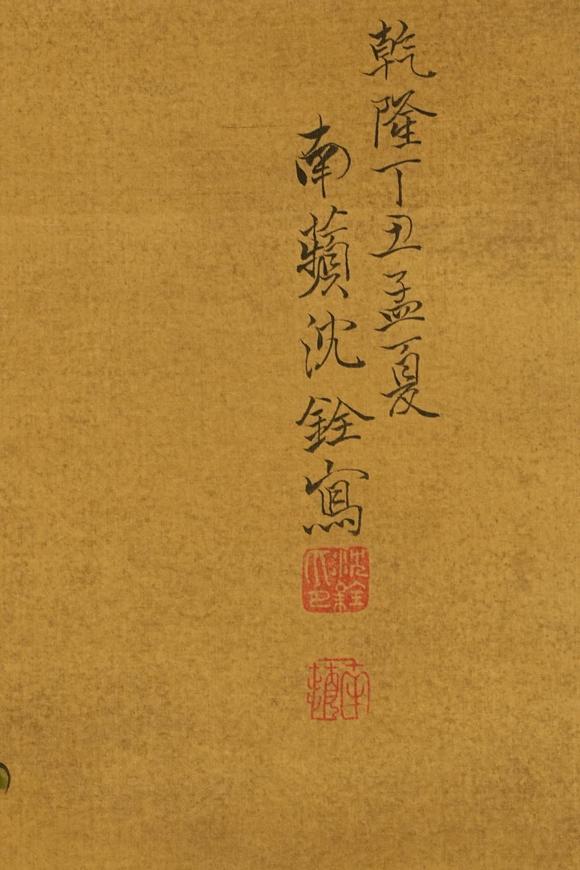 乾隆丁丑孟夏
南蘋沈銓寫
沈銓之印
南蘋